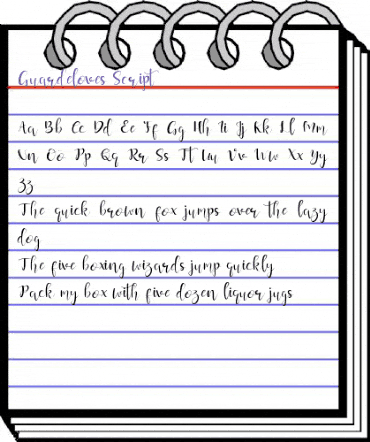 Guardeloves Script
Aa Bb Cc Dd Ee Ff Gg Hh Ii Jj Kk Ll Mm
Nn Oo Pp Qq Rr Ss Tt Uu Vv Ww Xx Yy
Zz
The quick brown fox jumps over the lazy
dog
The five boxing wizards jump quickly
Pack my box with five dozen liquor jugs